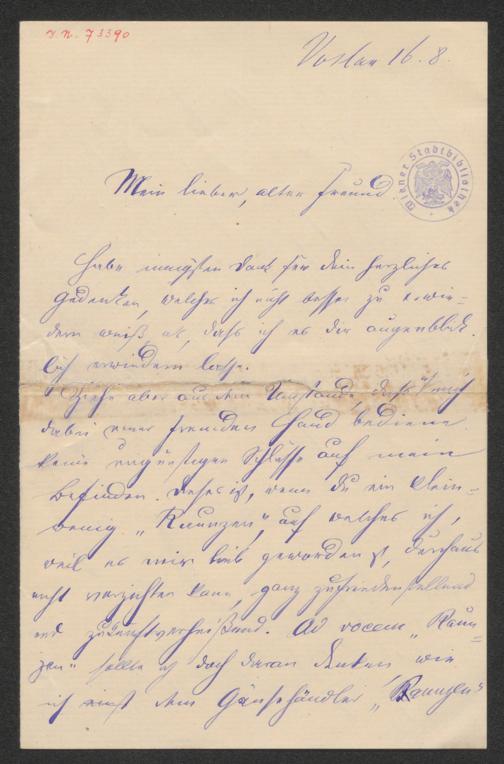 J. N. 73390
Vöslau 16. 8.
Wiener Stadtbibliothek
Mein lieber, alter Freund
Habe innigsten Dank für dein herzliches
Gedenken, welches ich nicht besser zu erwie-
dern weiß, als, dass ich es dir augenblick-
lich erwiedern lasse.
Ziehe aber aus dem Umstande, dass ich mich
dabei einer fremden Hand bediene
keine ungünstigen Schlüsse auf mein
Befinden. Dieses ist, wenn du ein klein-
wenig „Raunzen“, auf welches ich,
weil es mir lieb geworden ist, durchaus
nicht verzichten kann, ganz zufriedenstellend
und zukunftverheißend. Ad vocem „Raun-
zen“ sollte ich doch daran denken, wie
ich einst dem Gänsehändler „Raunzen“